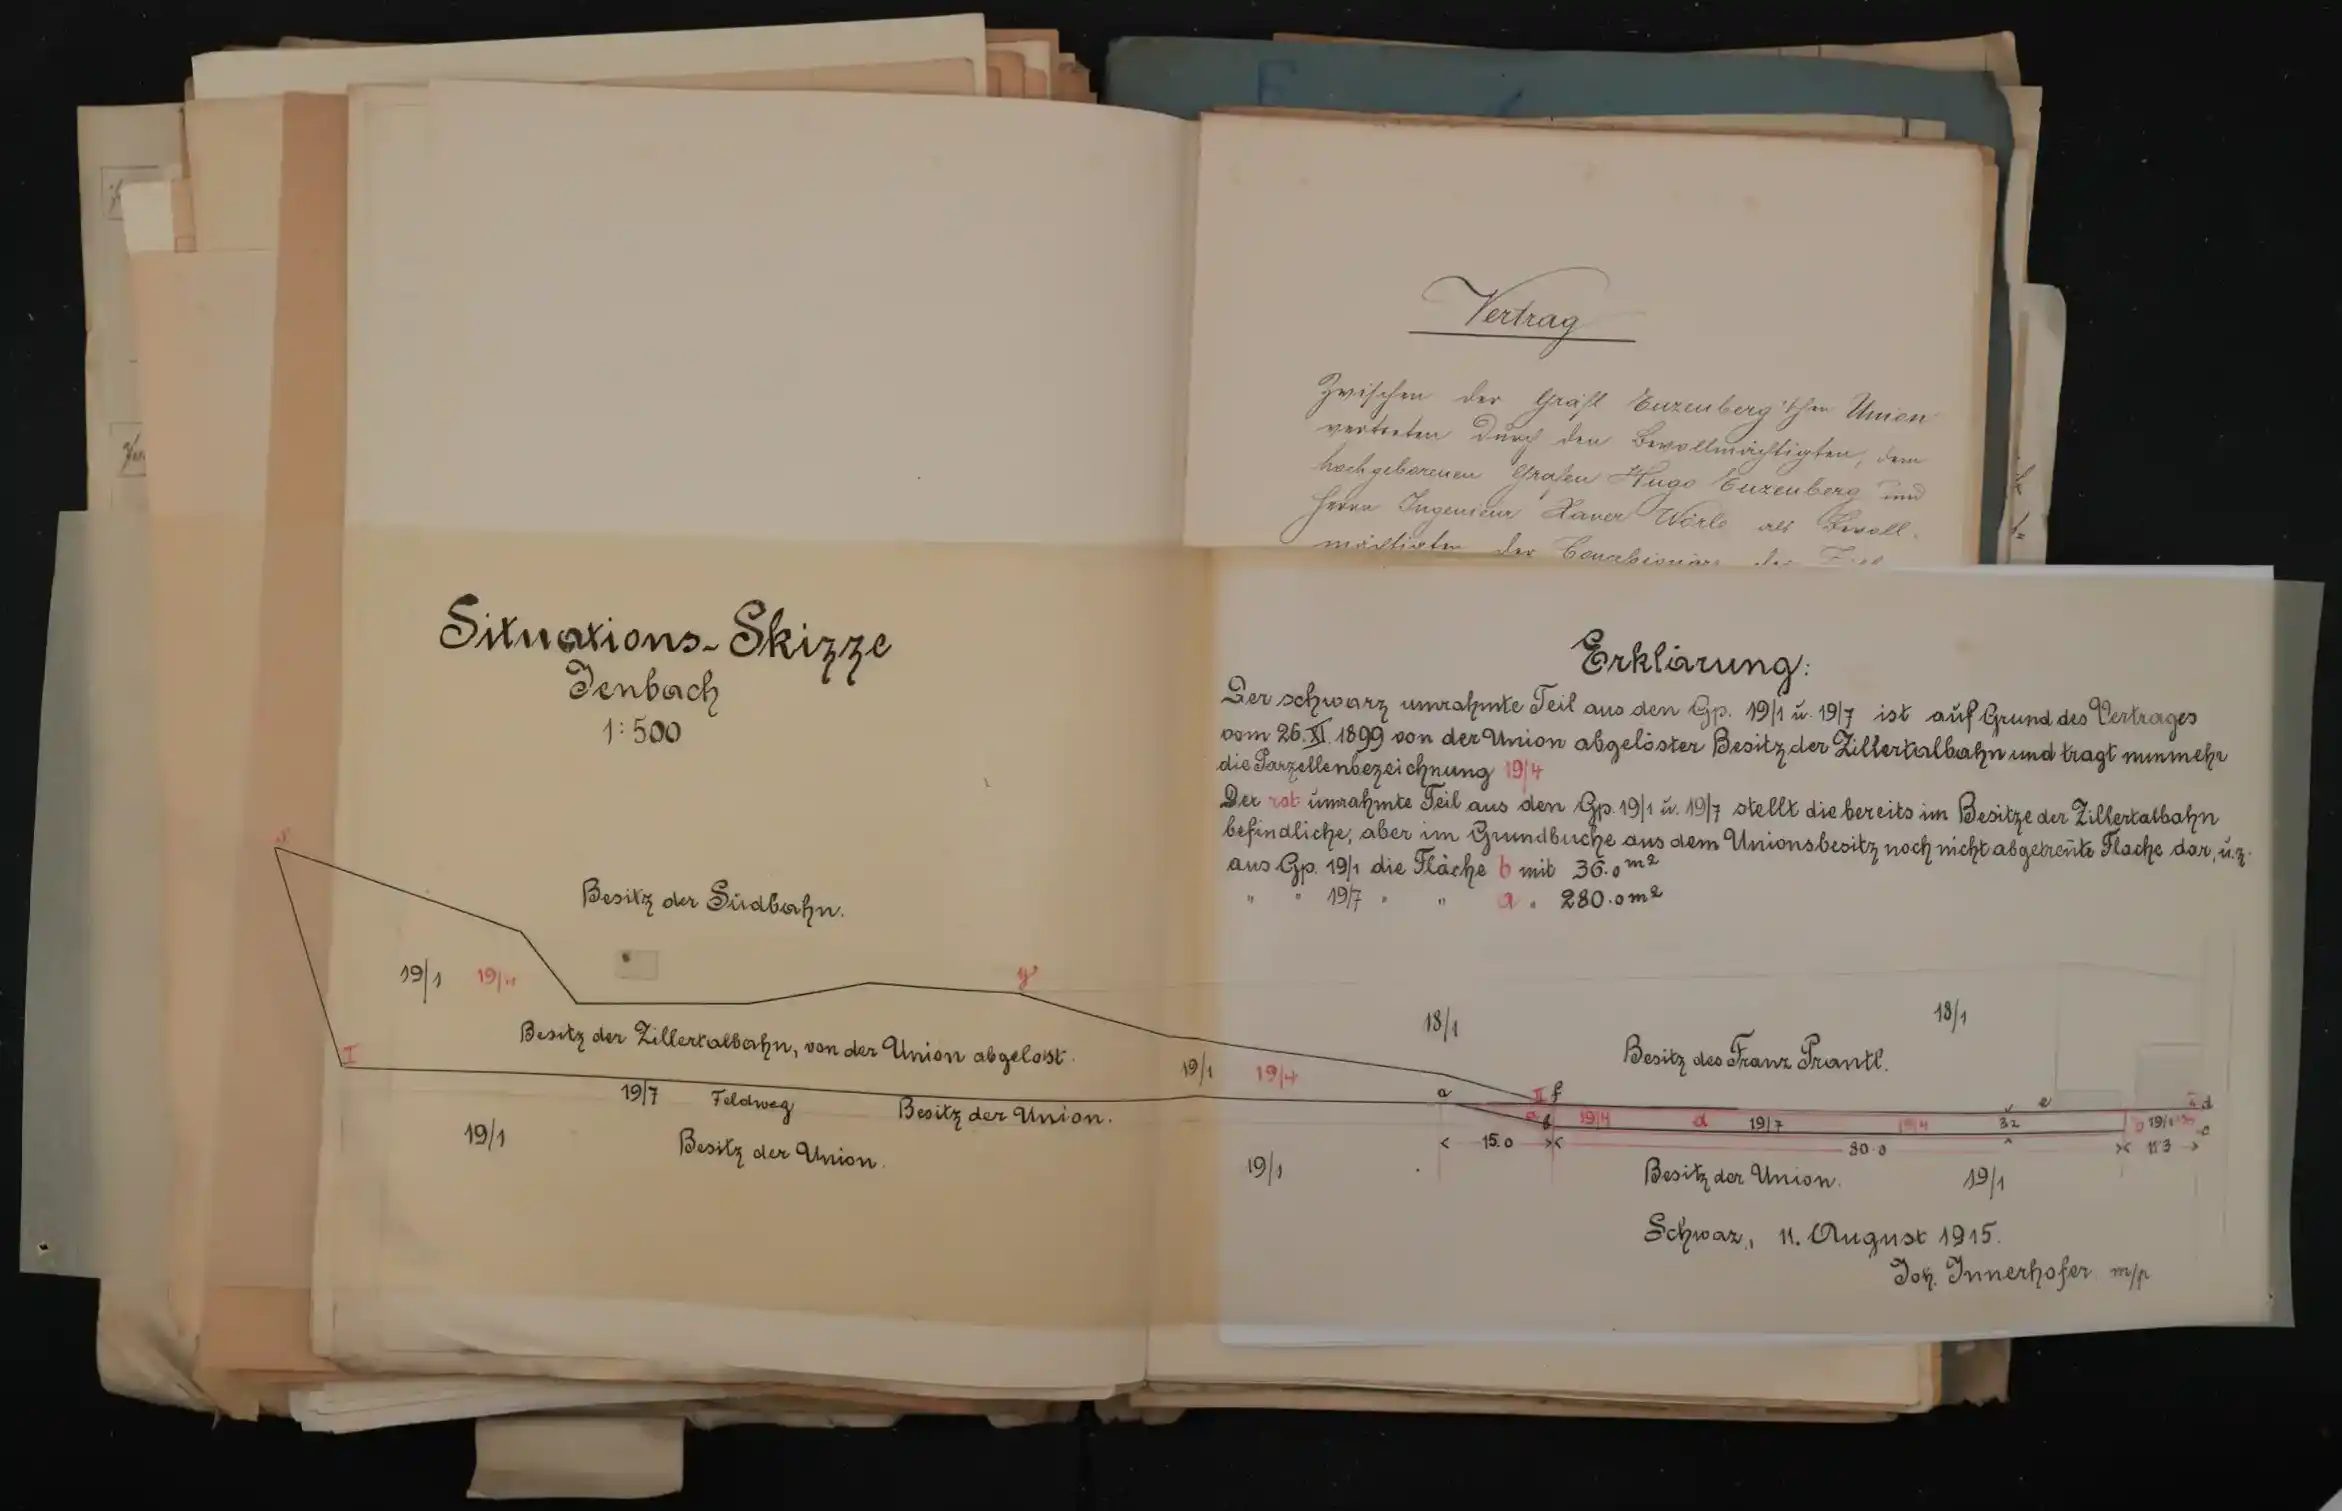 Vertrag
Zwischen der Gräfl Enzenberg'schen Union
vertreten durch den Bevollmächtigten, dem
hochgeborenen Grafen Hugo Enzenberg und
Herrn Ingenieur Xaver Wörle als Bevoll-
mächtigten der
Situations-Skizze
Jenbach
1:500
Erklärung:
Der schwarz umrahmte Teil aus den Gp. 19/1 u. 19/7 ist auf Grund des Vertrages
vom 26. XI. 1899 von der Union abgelöster Besitz der Zillertalbahn und tragt nunmehr
die Parzellenbezeichnung 19/4
Der rot umrahmte Teil aus den Gp. 19/1 u. 19/7 stellt die bereits im Besitze der Zillertalbahn
befindliche, aber im Grundbuche aus dem Unionsbesitz noch nicht abgetrente Fläche dar, u. z.
aus Gp. 19/1 die Fläche b mit 36.0 m²
" " 19/7 " " a " 280.0 m²
Besitz der Südbahn.
19/1 19/4
g
18/1
18/1
Besitz des Franz Prantl.
Besitz der Zillertalbahn, von der Union abgelöst.
I
19/1 19/4
19/7 Feldweg Besitz der Union.
a II f e d
a b 19/4 d 19/7 19/4 3.2 19/1 c
15.0 80.0 11.3
19/1
Besitz der Union.
19/1
Besitz der Union. 19/1
Schwaz, 11. August 1915.
Joh. Innerhofer m/p